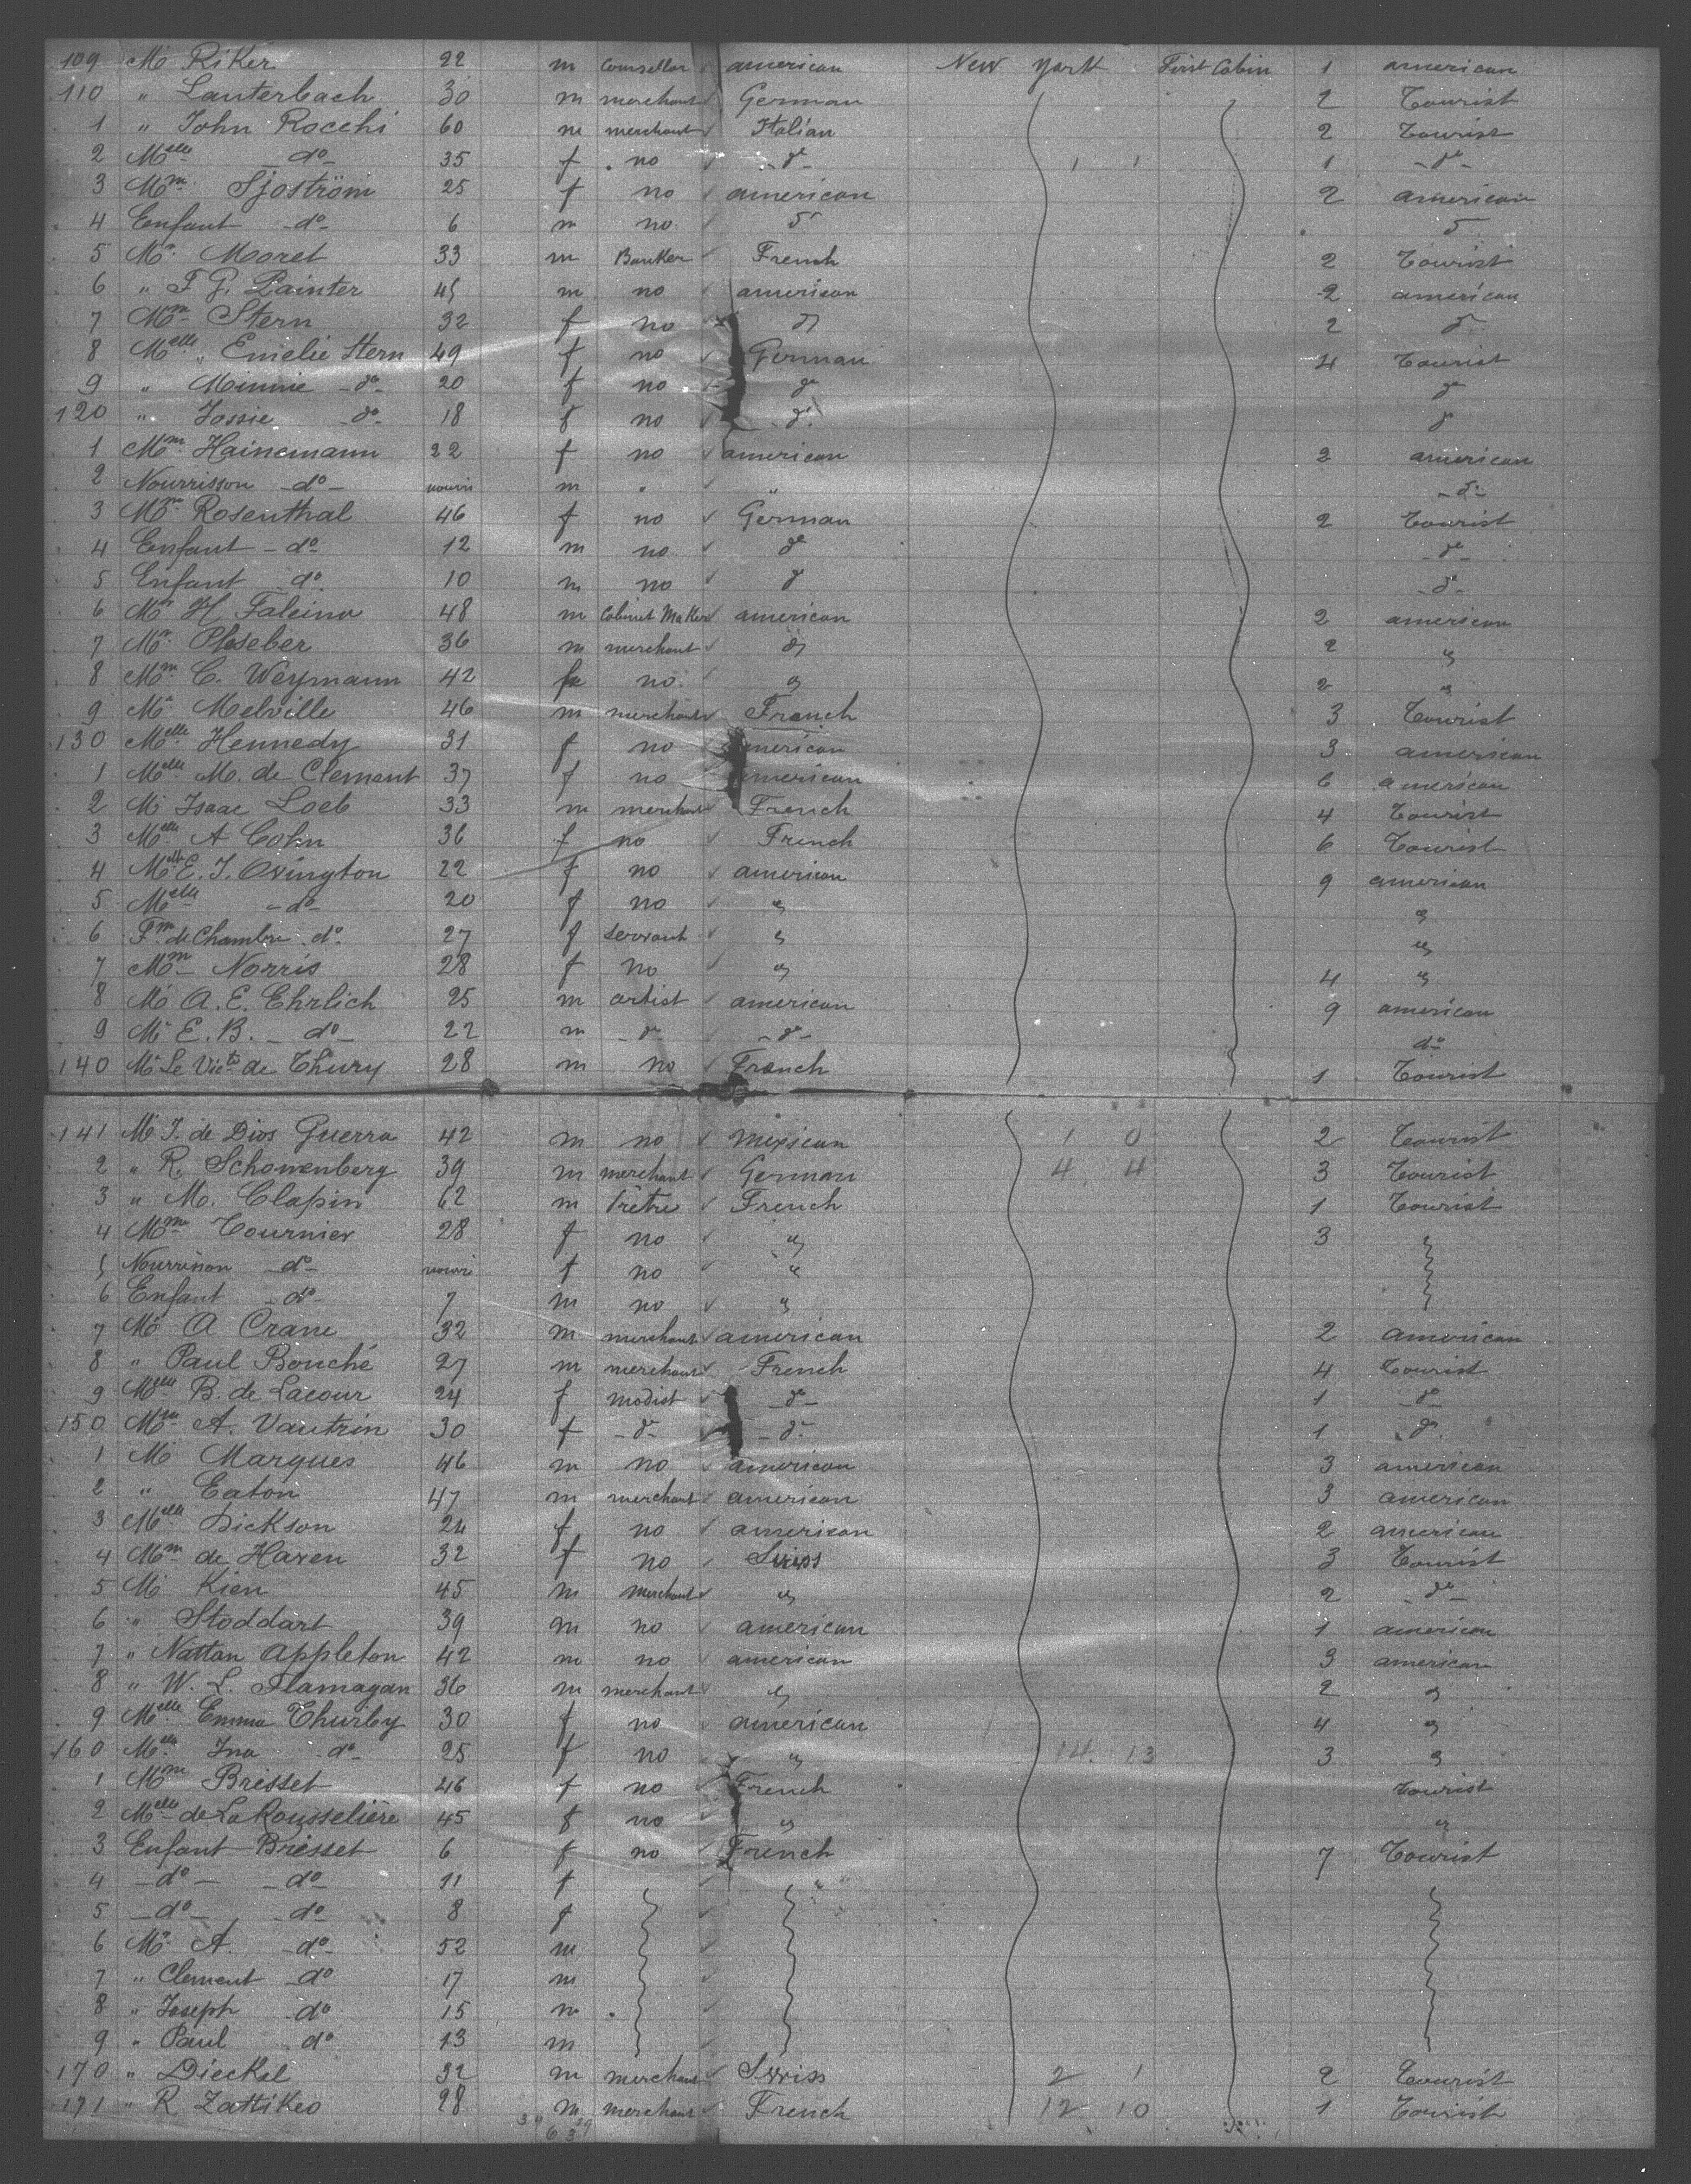 109 Mr Riker 22 m Counsellor american New York First Cabin 1 american
110 " Lauterbach 30 m merchant German 2 Tourist
1 " John Rocchi 60 m merchant Italian 2 Tourist
2 Melle do 35 f no do 1 do
3 Mme Sjoström 25 f no american 2 american
4 Enfant do 6 m no do do
5 Mr Moret 33 m Banker French 2 Tourist
6 " F G. Painter 45 m no american 2 american
7 Mme Stern 32 f no do 2 do
8 Melle Emelie Stern 49 f no German 4 Tourist
9 " Minnie do 20 f no do do
120 " Jossie do 18 f no do do
1 Mme Hainemann 22 f no american 2 american
2 Nourrisson do m " " do
3 Mme Rosenthal 46 f no German 2 Tourist
4 Enfant do 12 m no do do
5 Enfant do 10 m no do do
6 Mr H Falcina 48 m Cabinet Maker american 2 american
7 Mr 36 m merchant do 2 "
8 Mme C. Weymann 42 fe no " 2 "
9 Mr Melville 46 m merchant French 3 Tourist
130 Melle Hennedy 31 f no american 3 american
1 Melle M. de Clemont 37 f no american 6 american
2 Mr Isaac Loeb 33 m merchant French 4 Tourist
3 Melle A Cohn 36 f no French 6 Tourist
4 Melle E. J. Ovington 22 f no american 9 american
5 Melle do 20 f no " "
6 Fme de Chambre do 27 f servant " "
7 Mme Norris 28 f no " 4 "
8 Mr A. E. Ehrlich 25 m artist american 9 american
9 Mr E. B. do 22 m do do do
140 Mr Le Victe de Thury 28 m no French 1 Tourist
141 Mr J. de Dios Guerra 42 m no Mexican 1 0 2 Tourist
2 " R. Schowenberg 39 m merchant German 4 4 3 Tourist
3 " M. Clapin 62 m Prêtre French 1 Tourist
4 Mme Tournier 28 f no " 3
5 Nourrison do f no "
6 Enfant do 7 m no "
7 Mr A Crane 32 m merchant american 2 american
8 " Paul Bouché 27 m merchant French 4 Tourist
9 Melle B. de Lacour 24 f modist do 1 do
150 Mme A. Vautrin 30 f do do 1 do
1 Mr Marques 46 m no american 3 american
2 " Eaton 47 m merchant american 3 american
3 Melle Dickson 24 f no american 2 american
4 Mme de Haven 32 f no Swiss 3 Tourist
5 Mr Kien 45 m merchant " 2 do
6 " Stoddart 39 m no american 1 american
7 " Nattan Appleton 42 m no american 3 american
8 " W. L. Flamagan 36 m merchant " 2 "
9 Melle Emma Thurby 30 f no american 4 "
160 Melle Ina do 25 f no " 14. 13 3 "
1 Mme Brisset 46 f no French Tourist
2 Melle de La Rousselière 45 f no " "
3 Enfant Brisset 6 f no French 7 Tourist
4 do do 11 f
5 do do 8 f
6 Mr A. do 52 m
7 " Clement do 17 m
8 " Joseph do 15 m
9 " Paul do 13 m
170 " Dieckel 32 m merchant Swiss 2 1 2 Tourist
171 " R Zattikeo 28 m merchant French 12 10 1 Tourist